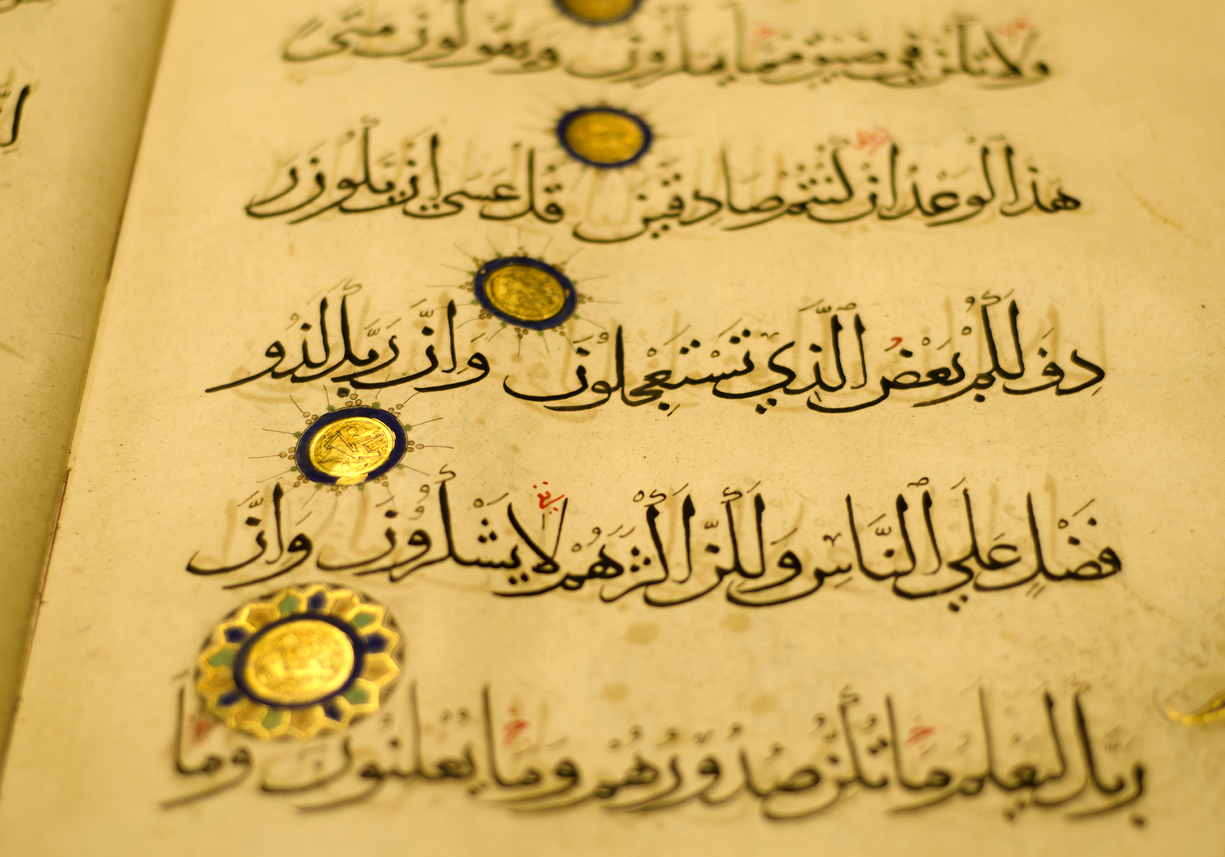 ولا تكن في ضيق مما يمكرون ويقولون متى
هذا الوعد ان كنتم صادقين قل عسى ان يكون ر
دف لكم بعض الذي تستعجلون وان ربك لذو
فضل علي الناس ولكن اكثرهم لا يشكرون وان
ربك ليعلم ما تكن صدورهم وما يعلنون وما